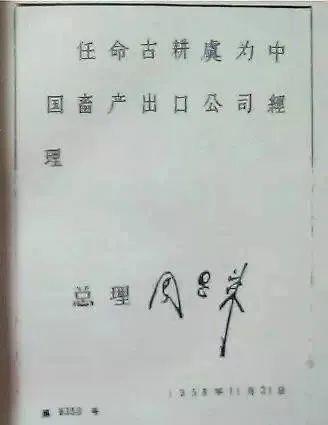 任命古耕虞为中
国畜产出口公司經
理
总理 周恩来
1958年11月21日
第 9350 号